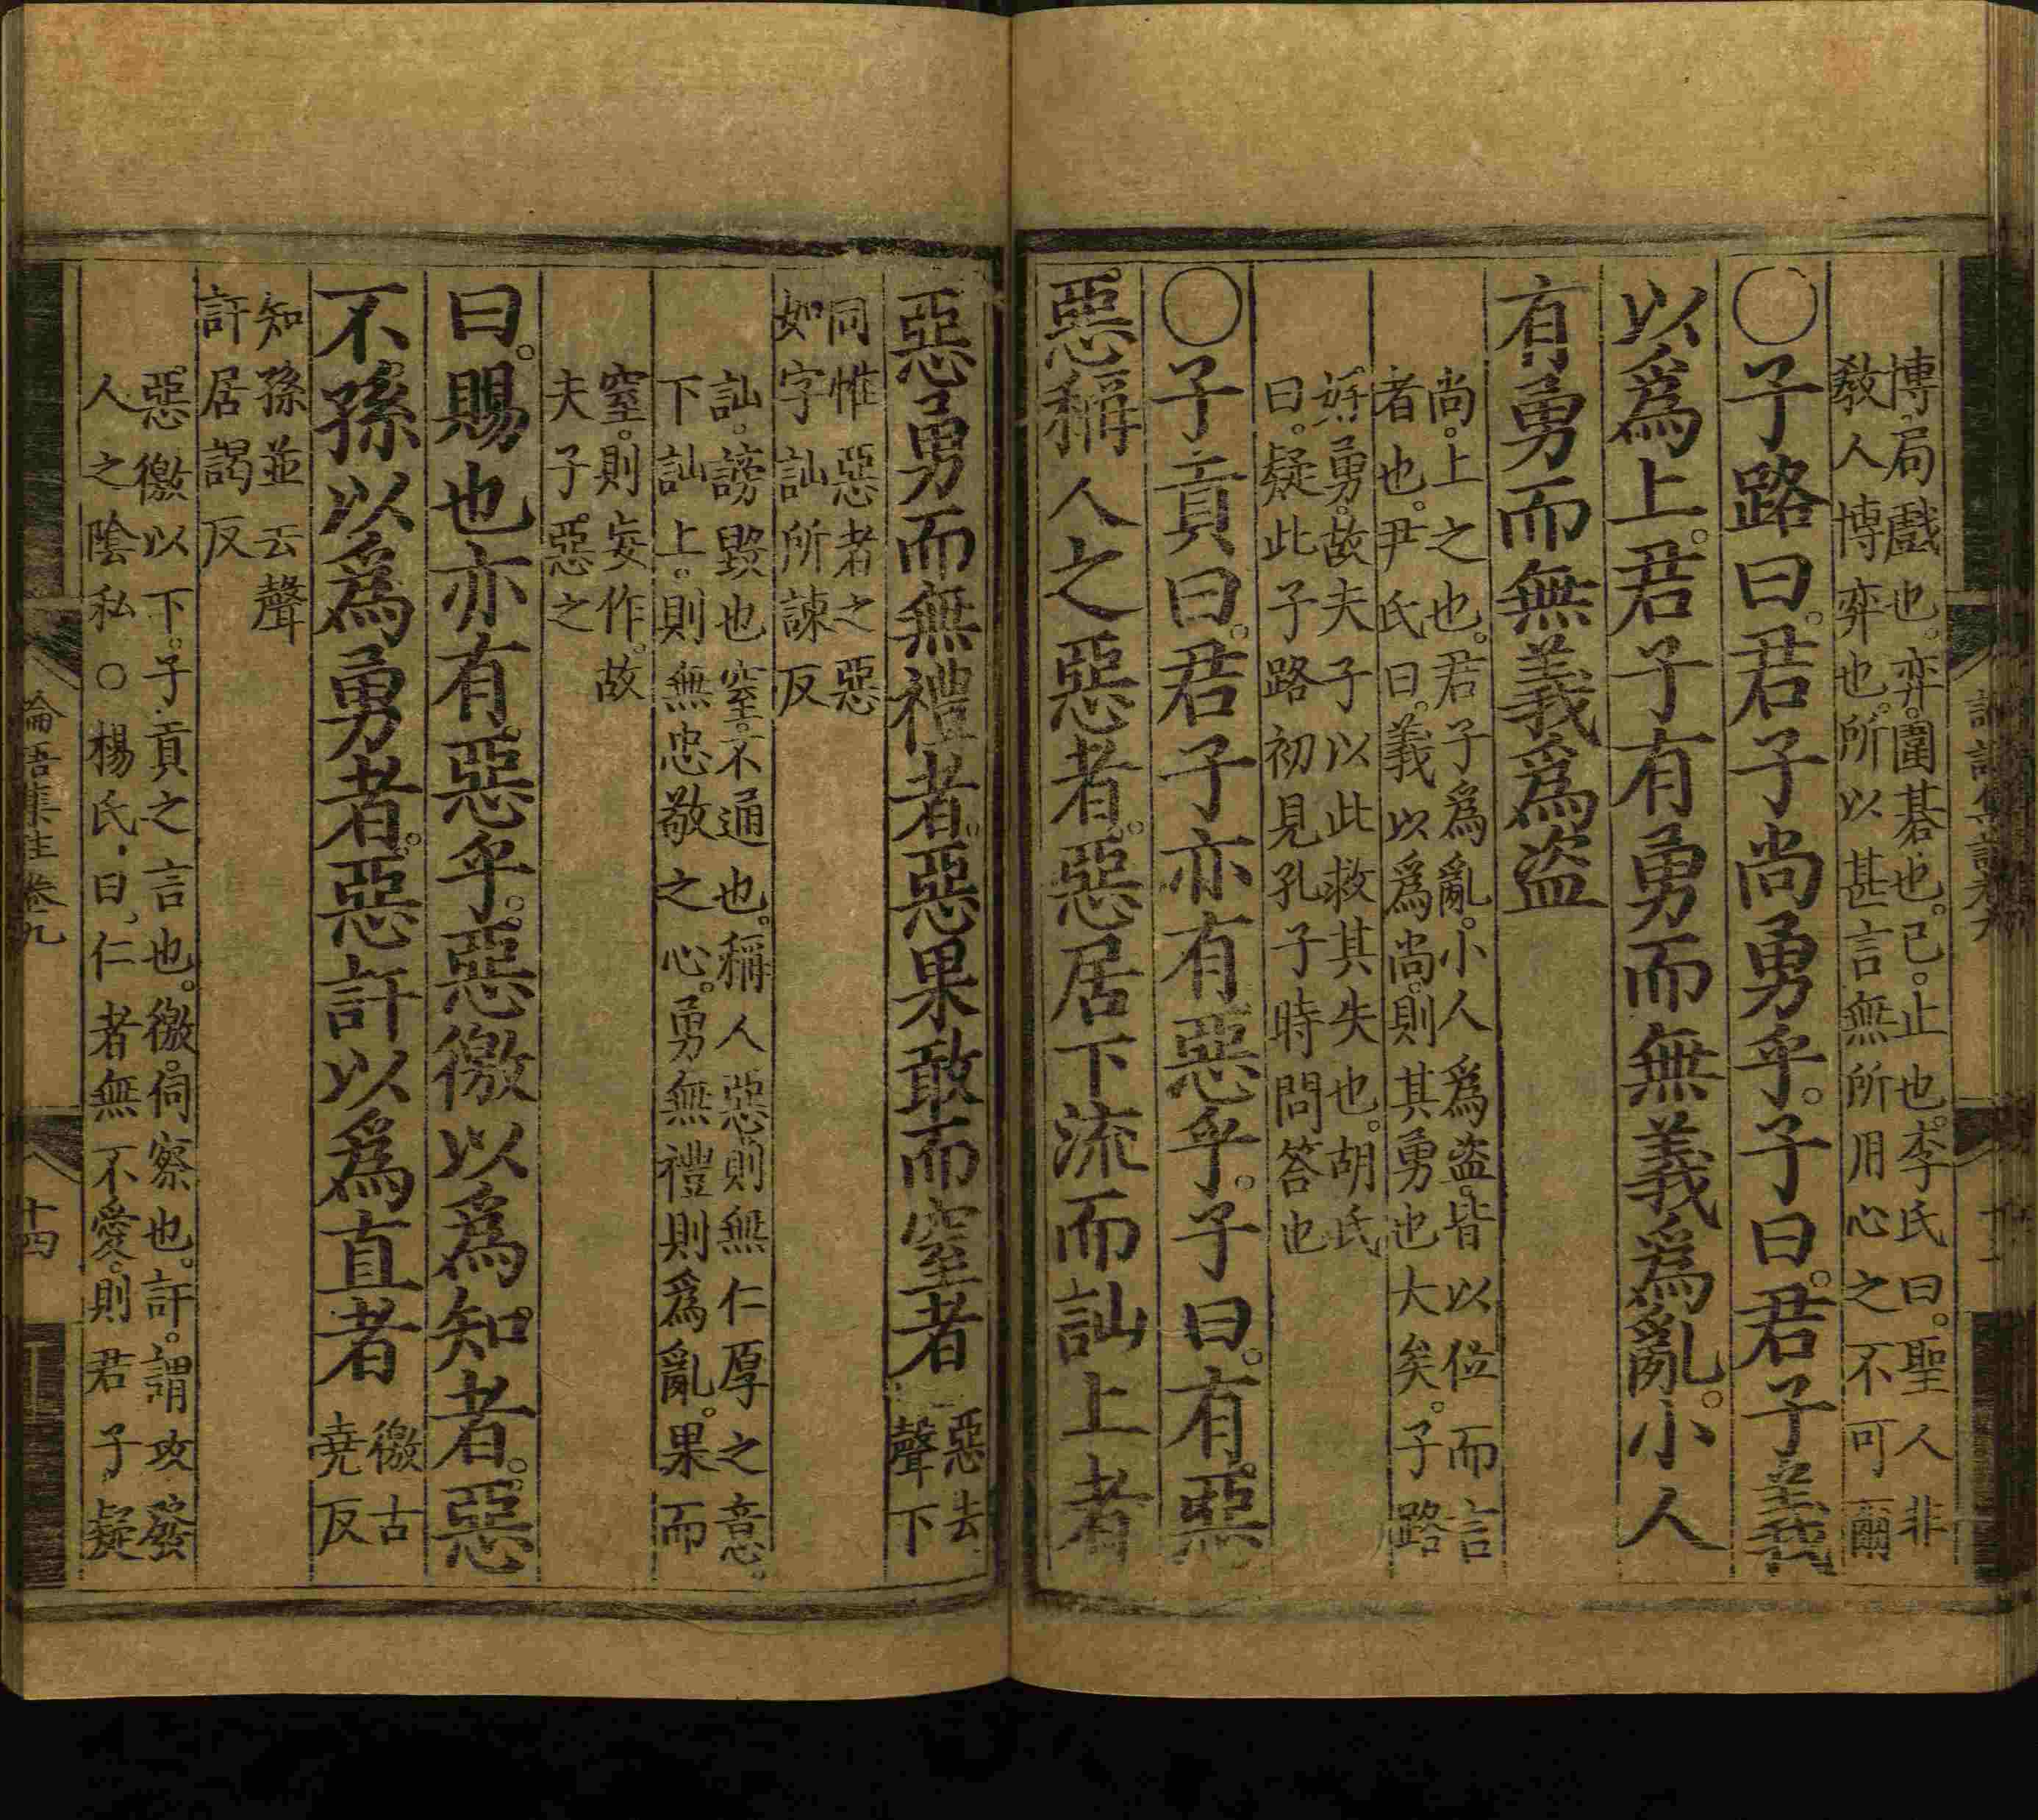 博。局戲也。弈。圍棊也。已。止也。李氏曰。聖人非
敎人博弈也。所以甚言無所用心之不可爾
○子路曰。君子尚勇乎。子曰。君子義
以爲上。君子有勇而無義爲亂。小人
有勇而無義爲盜
尚。上之也。君子爲亂。小人爲盜。皆以位而言
者也。尹氏曰。義以爲尚。則其勇也大矣。子路
好勇。故夫子以此救其失也。胡氏
曰。疑此子路初見孔子時問答也
○子貢曰。君子亦有惡乎。子曰。有惡
惡稱人之惡者。惡居下流而訕上者
惡勇而無禮者。惡果敢而窒者
惡去
聲下
同惟惡者之惡
如字訕所諫反
訕。謗毀也窒。不通也。稱人惡則無仁厚之意。
下訕上。則無忠敬之心。勇無禮則爲亂。果而
窒。則妄作。故
夫子惡之
曰。賜也亦有惡乎。惡徼以爲知者。惡
不孫以爲勇者。惡訐以爲直者
徼古
堯反
知孫並去聲
訐居謁反
惡徼以下。子貢之言也。徼。伺察也。訐。謂攻發
人之陰私○楊氏曰、仁者無不愛。則君子疑
論語集註卷九
十四